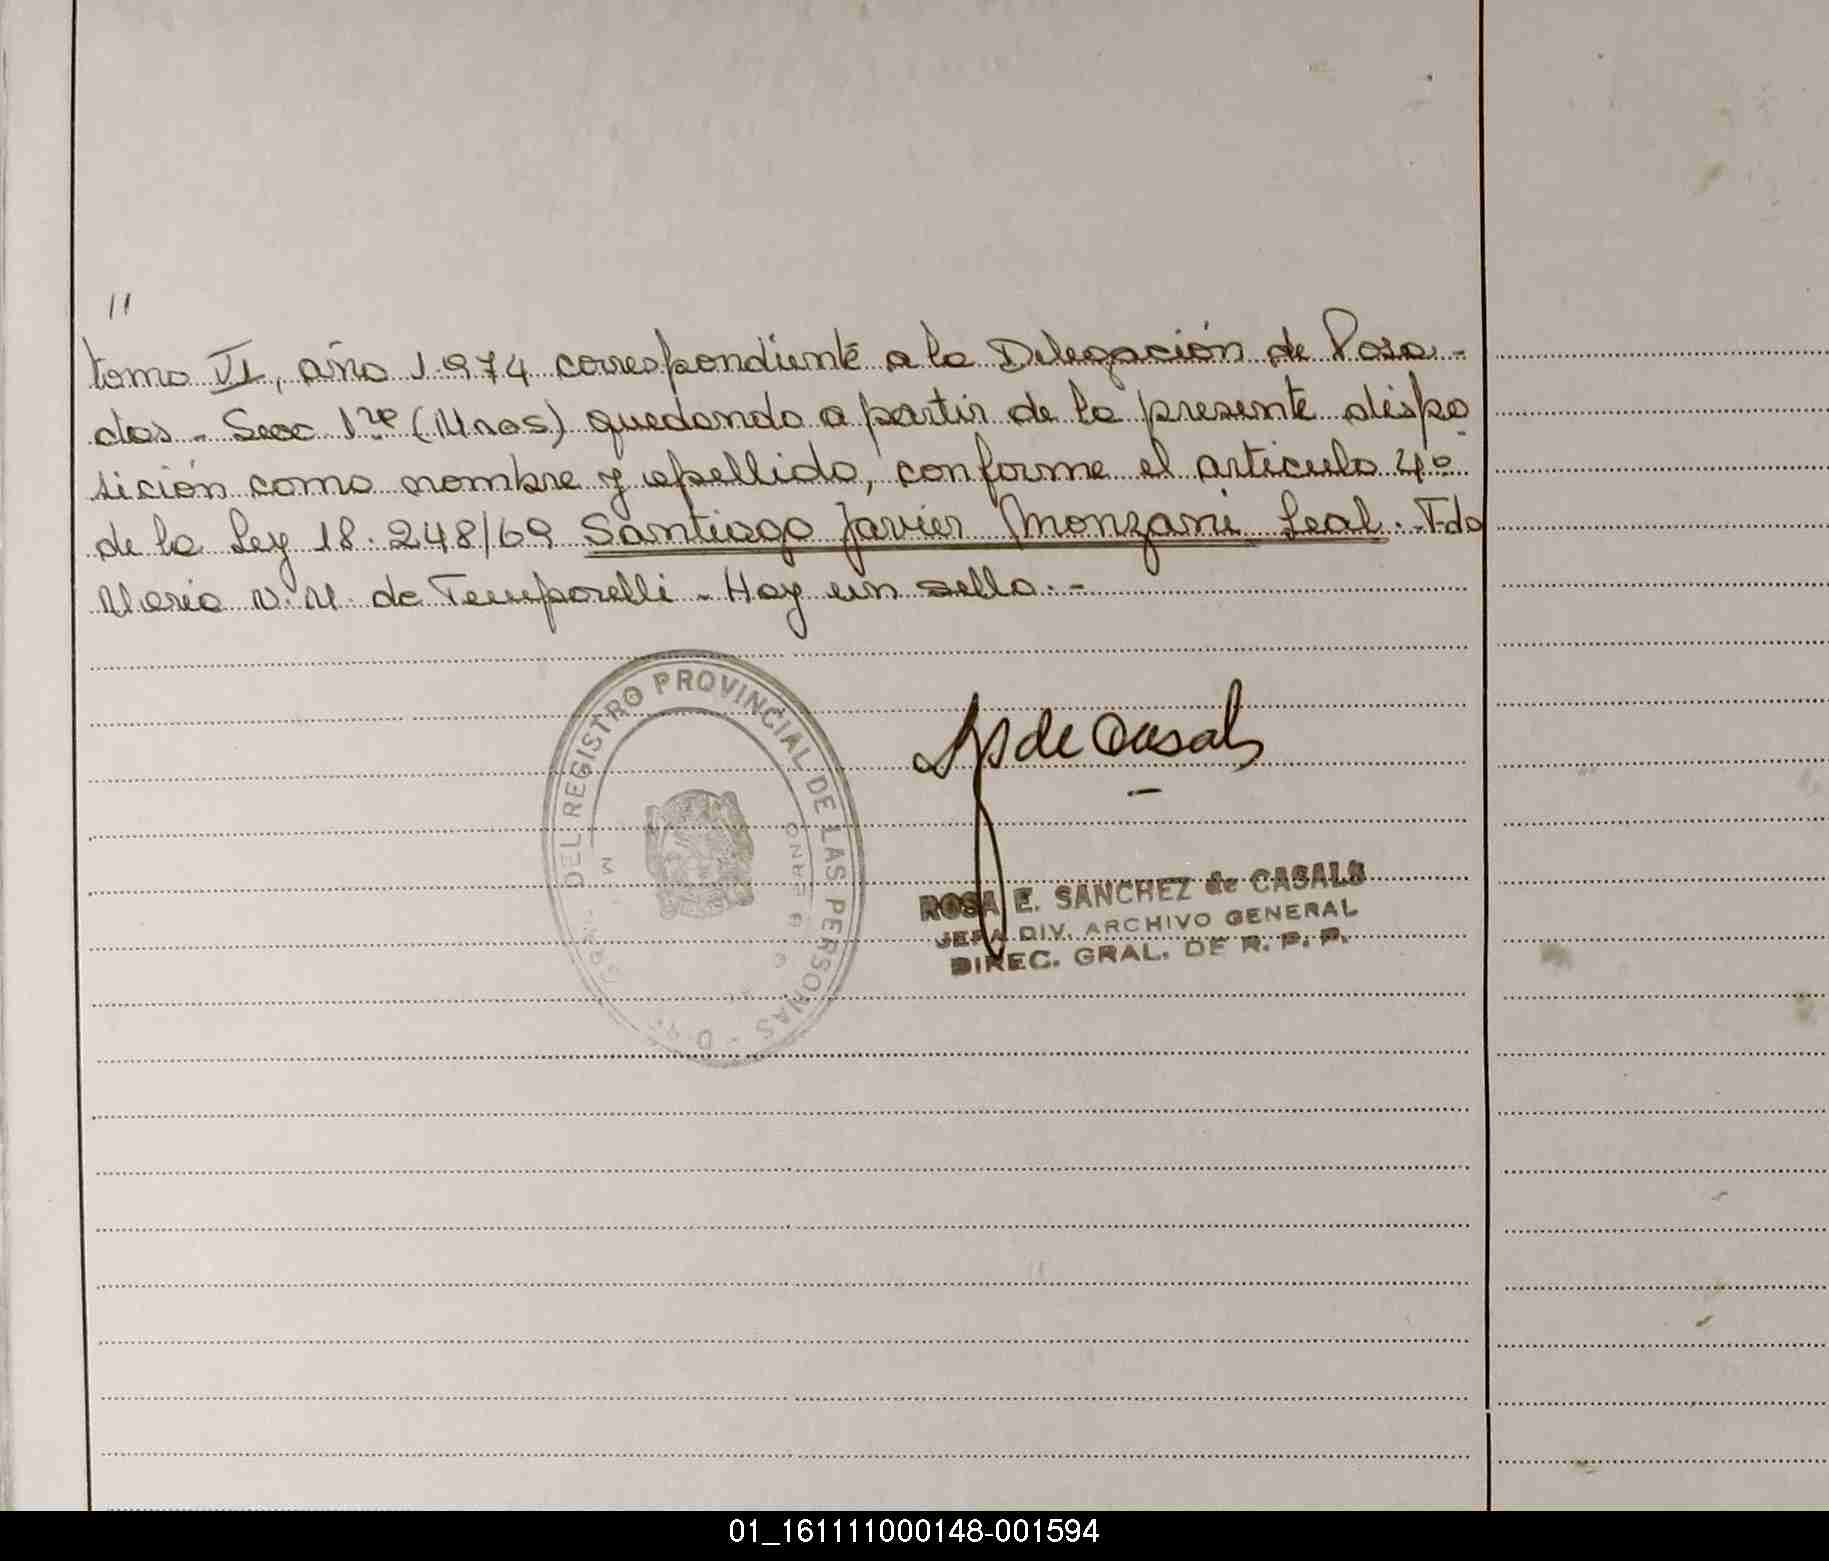 11
tomo VI, año 1.974 correspondiente a la Delegación de Posa-
das - Secc 1ra (Mnas) quedando a partir de la presente dispo
sición como nombre y apellido, conforme el artículo 4º
de la Ley 18.248/69 Santiago Javier Monzani Leal. Fdo
María N. M. de Temporelli - Hay un sello.-
DEL REGISTRO PROVINCIAL DE LAS PERSONAS
de Casals
ROSA E. SANCHEZ de CASALS
JEFA DIV. ARCHIVO GENERAL
DIREC. GRAL. DE R. P. P.
01_161111000148-001594